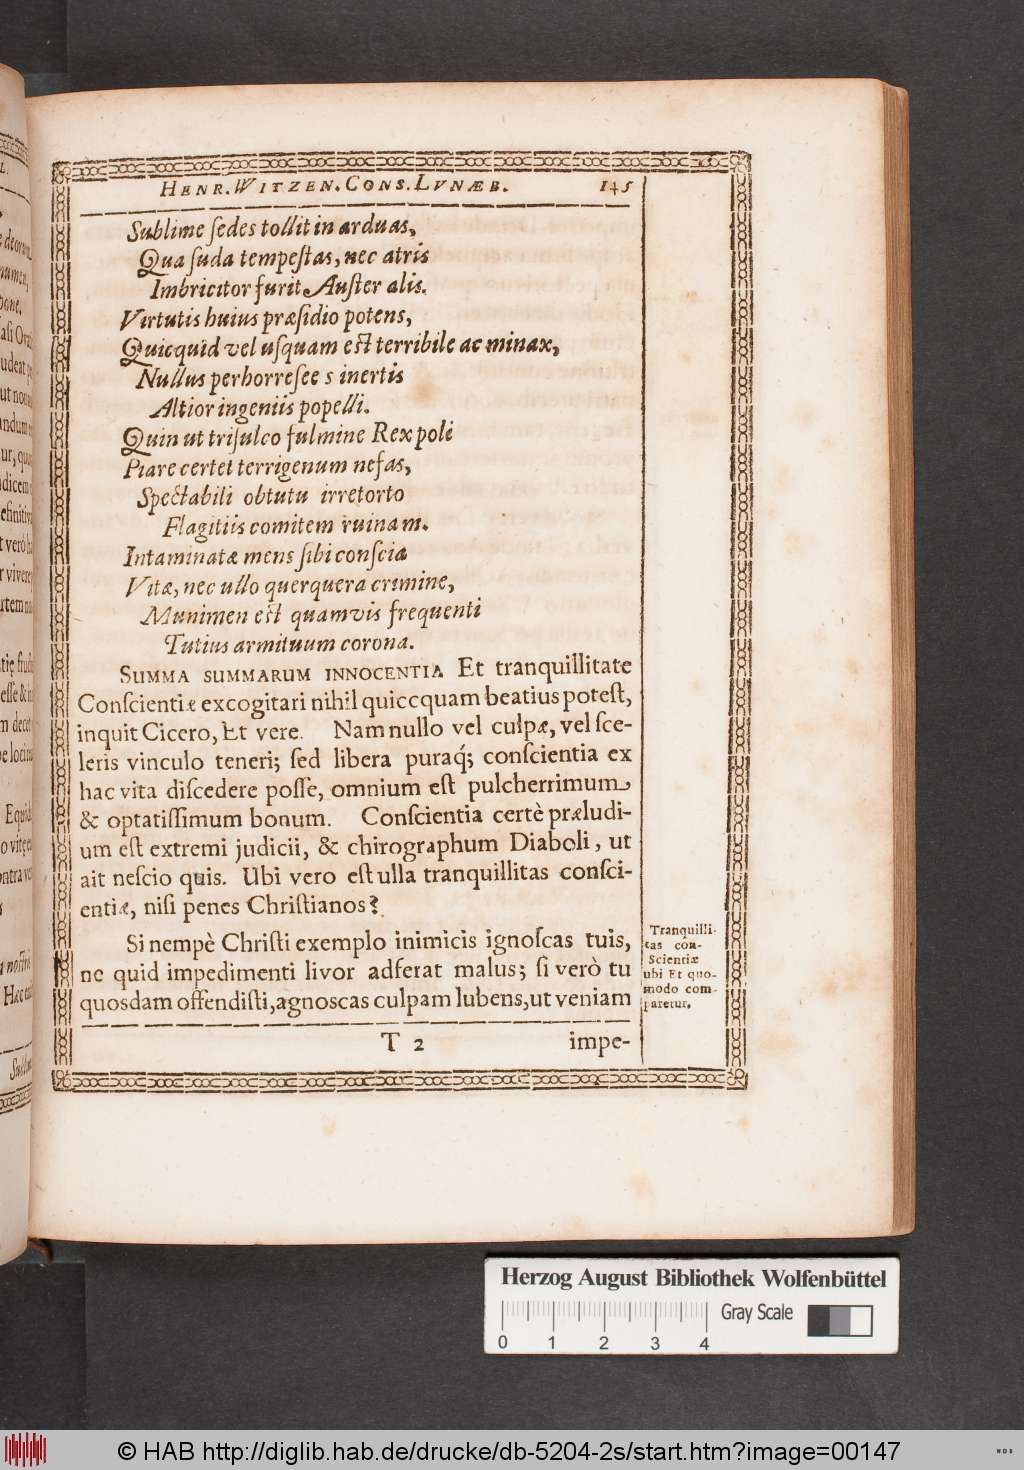 HENR. WITZEN. CONS. LVNÆB. 145
Sublime sedes tollit in arduas,
Qua suda tempestas, nec atris
Imbricitor furit Auster alis.
Virtutis huius præsidio potens,
Quicquid vel usquam est terribile ac minax,
Nullus perhorresee s inertis
Altior ingeniis popelli.
Quin ut trisulco fulmine Rex poli
Piare certet terrigenum nefas,
Spectabili obtutu irretorto
Flagitiis comitem ruinam.
Intaminatæ mens sibi conscia
Vitæ, nec ullo querquera crimine,
Munimen est quamvis frequenti
Tutius armituum corona.
SUMMA SUMMARUM INNOCENTIA Et tranquillitate
Conscientiæ excogitari nihil quiccquam beatius potest,
inquit Cicero, Et vere. Nam nullo vel culpæ, vel sce-
leris vinculo teneri; sed libera puraq́; conscientia ex
hac vita discedere posse, omnium est pulcherrimum
& optatissimum bonum. Conscientia certè præludi-
um est extremi judicii, & chirographum Diaboli, ut
ait nescio quis. Ubi vero est ulla tranquillitas consci-
entiæ, nisi penes Christianos?
Si nempè Christi exemplo inimicis ignoscas tuis,
ne quid impedimenti livor adferat malus; si verò tu
quosdam offendisti, agnoscas culpam lubens, ut veniam
Tranquilli-
tas con-
Scientiæ
ubi Et quo-
modo com-
paretur.
T 2 impe-
Herzog August Bibliothek Wolfenbüttel
Gray Scale
0 1 2 3 4
© HAB http://diglib.hab.de/drucke/db-5204-2s/start.htm?image=00147